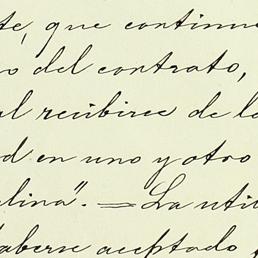 te, que continu
o del contrato,
al recibirse de l
d en uno y otro
lina". — La uti
aberse aceptado